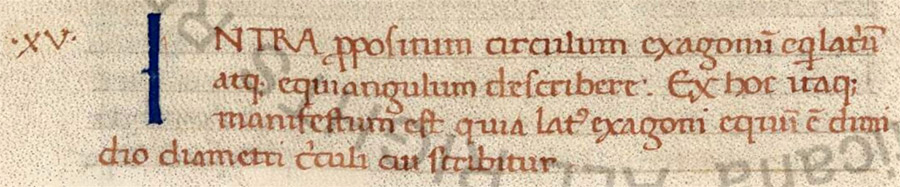 ·XV· INTRA ꝓpositum circulum exagonū eq̇lat̓ū
atq; equiangulum describere. Ex hoc itaq;
manifestum est quia latꝰ exagoni equū ē dimi
dio diametri c̓culi cui scribitur